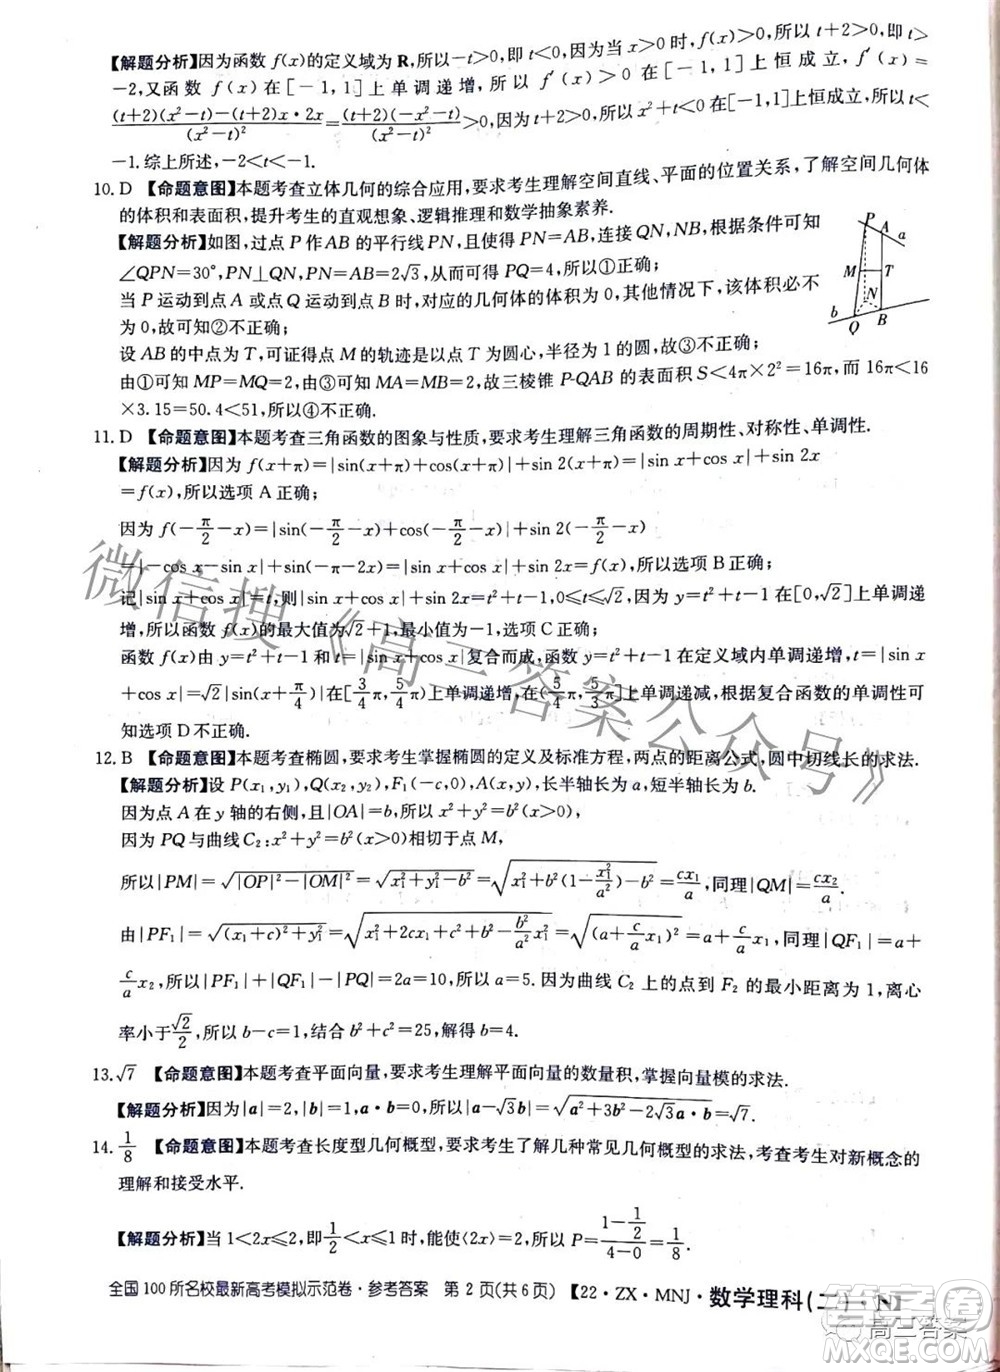 【解题分析】因为函数 f(x)的定义域为 R,所以x²-t>0,即 t<0,因为当 x>0 时,f(x)>0,所以 t+2>0,即 t>
-2,又函数 f(x)在[-1,1]上单调递增,所以 f′(x)>0 在[-1,1]上恒成立,f′(x)=
((t+2)(x²-t)-(t+2)x·2x)/(x²-t)²=(t+2)(-x²-t)/(x²-t)²>0,因为t+2>0,所以x²+t<0在[-1,1]上恒成立,所以t<
-1.综上所述,-2<t<-1.
10. D 【命题意图】本题考查立体几何的综合应用,要求考生理解空间直线、平面的位置关系,了解空间几何体
的体积和表面积,提升考生的直观想象、逻辑推理和数学抽象素养.
【解题分析】如图,过点 P 作 AB 的平行线 PN,且 PN=AB,连接 QN,NB,根据条件可知
∠QPN=30°,PN⊥QN,PN=AB=2√3,从而得 PQ=4,所以①正确;
当 P 运动到点 A 或点 Q 运动到点 B 时,对应的几何体的体积为 0,其他情况下,该体积必不
为 0,故可知②不正确;
设 AB 的中点为 T,计算可知点 M 的轨迹是以点 T 为圆心,半径为 1 的圆,故③正确;
由①可知 MP=MQ=2,由③可知 MA=MB=2,故三棱锥 P-QAB 的表面积 S<4π×2²=16π,而 16π<16
×3.15=50.4<51,所以④不正确.
P
A
a
M
T
N
b
Q
B
11. D 【命题意图】本题考查三角函数的图象与性质,要求考生理解三角函数的周期性、对称性、单调性.
【解题分析】因为 f(x+π)=|sin(x+π)+cos(x+π)|+sin 2(x+π)=|sin x+cos x|+sin 2x
=f(x),所以选项 A 正确;
因为 f(-π/2-x)=|sin(-π/2-x)+cos(-π/2-x)|+sin 2(-π/2-x)
=|-cos x-sin x|+sin(-π-2x)=|sin x+cos x|+sin 2x=f(x),所以选项B正确;
记|sin x+cos x|=t,则|sin x+cos x|+sin 2x=t²+t-1,0≤t≤√2,因为 y=t²+t-1 在[0,√2]上单调递
增,所以函数 f(x)的最大值为√2+1,最小值为-1,选项 C正确;
函数 f(x)由 y=t²+t-1 和 t=|sin x+cos x|复合而成,函数 y=t²+t-1 在定义域内单调递增,t=|sin x+
cos x|=√2|sin(x+π/4)|在[3/4π,5/4π]上单调递增,在(5/4π,5/3π)上单调递减,根据复合函数的单调性可
知选项 D不正确.
12. B 【命题意图】本题考查椭圆,要求考生掌握椭圆的定义及标准方程,两点的距离公式,圆中切线长的求法.
【解题分析】设 P(x₁,y₁),Q(x₂,y₂),F₁(-c,0),A(x,y),长半轴长为 a,短半轴长为 b.
因为点 A 在 y 轴的右侧,且|OA|=b,所以 x²+y²=b²(x>0).
因为 PQ 与曲线 C₂:x²+y²=b²(x>0)相切于点 M,
所以|PM|=√(|OP|²-|OM|²)=√(x₁²+y₁²-b²)=√(x₁²+b²(1-x₁²/a²)-b²)=cx₁/a,同理|QM|=cx₂/a.
由|PF₁|=√((x₁+c)²+y₁²)=√(x₁²+2cx₁+c²+b²-b²/a²x₁²)=√((a+c/a x₁)²)=a+c/a x₁,同理|QF₁|=a+
c/a x₂,所以|PF₁|+|QF₁|-|PQ|=2a=10,所以 a=5. 因为曲线 C₂ 上的点到 F₂ 的最小距离为 1,离心
率小于√2/2,所以 b-c=1,结合 b²+c²=25,解得 b=4.
13. √7 【命题意图】本题考查平面向量,要求考生理解平面向量的数量积,掌握向量模的求法.
【解题分析】因为|a|=2,|b|=1,a·b=0,所以|a-√3b|=√(a²+3b²-2√3a·b)=√7.
14. 1/8 【命题意图】本题考查长度型几何概型,要求考生了解几种常见几何概型的求法,考查考生对新概念的
理解和接受水平.
【解题分析】当 1<2x≤2,即1/2<x≤1时,<2x>=2,所以 P=(1-1/2)/(4-0)=1/8.
全国 100 所名校最新高考模拟示范卷·参考答案 第 2 页(共 6 页) 【22·ZX·MNJ·数学理科(二)·N】
微信搜《高三答案公众号》
答案圈
高三答案